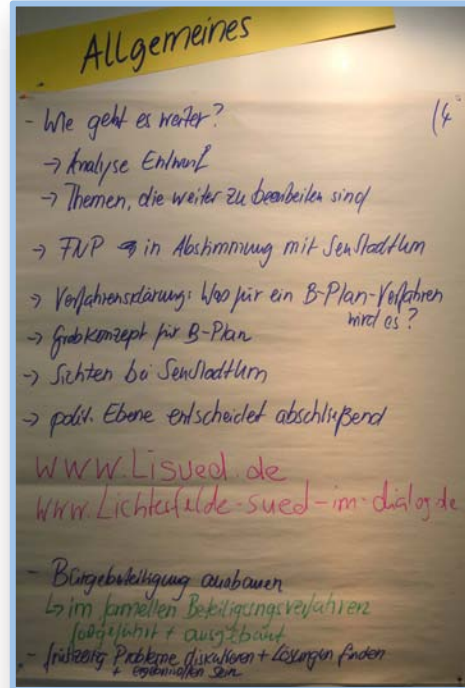 Allgemeines
- Wie geht es weiter? (4
→ Analyse Entwurf
→ Themen, die weiter zu bearbeiten sind
→ FNP → in Abstimmung mit SenStadtUm
→ Verfahrensklärung: Was für ein B-Plan-Verfahren
wird es?
→ Grobkonzept für B-Plan
→ Sichten bei SenStadtUm
→ polit. Ebene entscheidet abschließend
www.Lisued.de
www.Lichterfelde-sued-im-dialog.de
- Bürgerbeteiligung ausbauen
↳ im formellen Beteiligungsverfahren
fortgeführt + ausgebaut
- frühzeitig Probleme diskutieren + Lösungen finden
+ ergebnisoffen sein